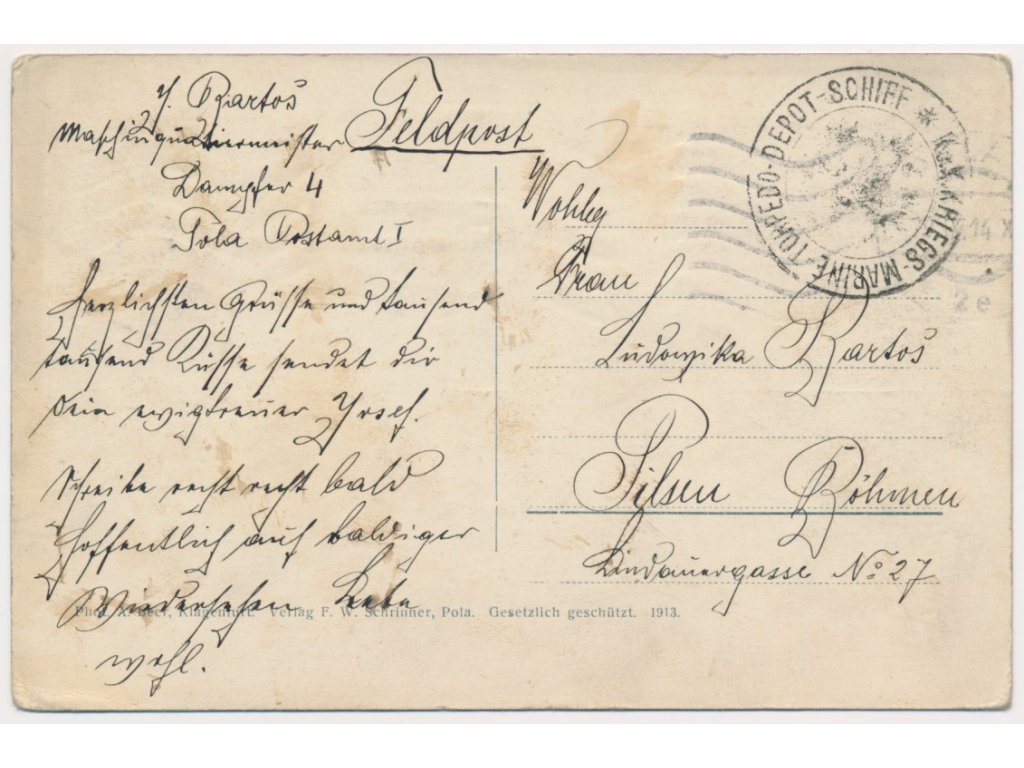 J. Bartos
Maschinquartiermeister
Dampfer 4
Pola Postamt I
Feldpost
Herzlichsten Grüsse und tausend
tausend Küsse sendet dir
dein ewigtreuer Josef.
Schreibe recht recht bald
Hoffentlich auf baldiger
Wiedersehen Lebe
wohl.
K.u.K. KRIEGS-MARINE-TORPEDO-DEPOT-SCHIFF *
14 X
2 e
Wohlg
Frau
Ludowika Bartos
Pilsen Böhmen
Lindauergasse No 27
Phot. Klagenfurt. Verlag F. W. Schrinner, Pola. Gesetzlich geschützt. 1913.